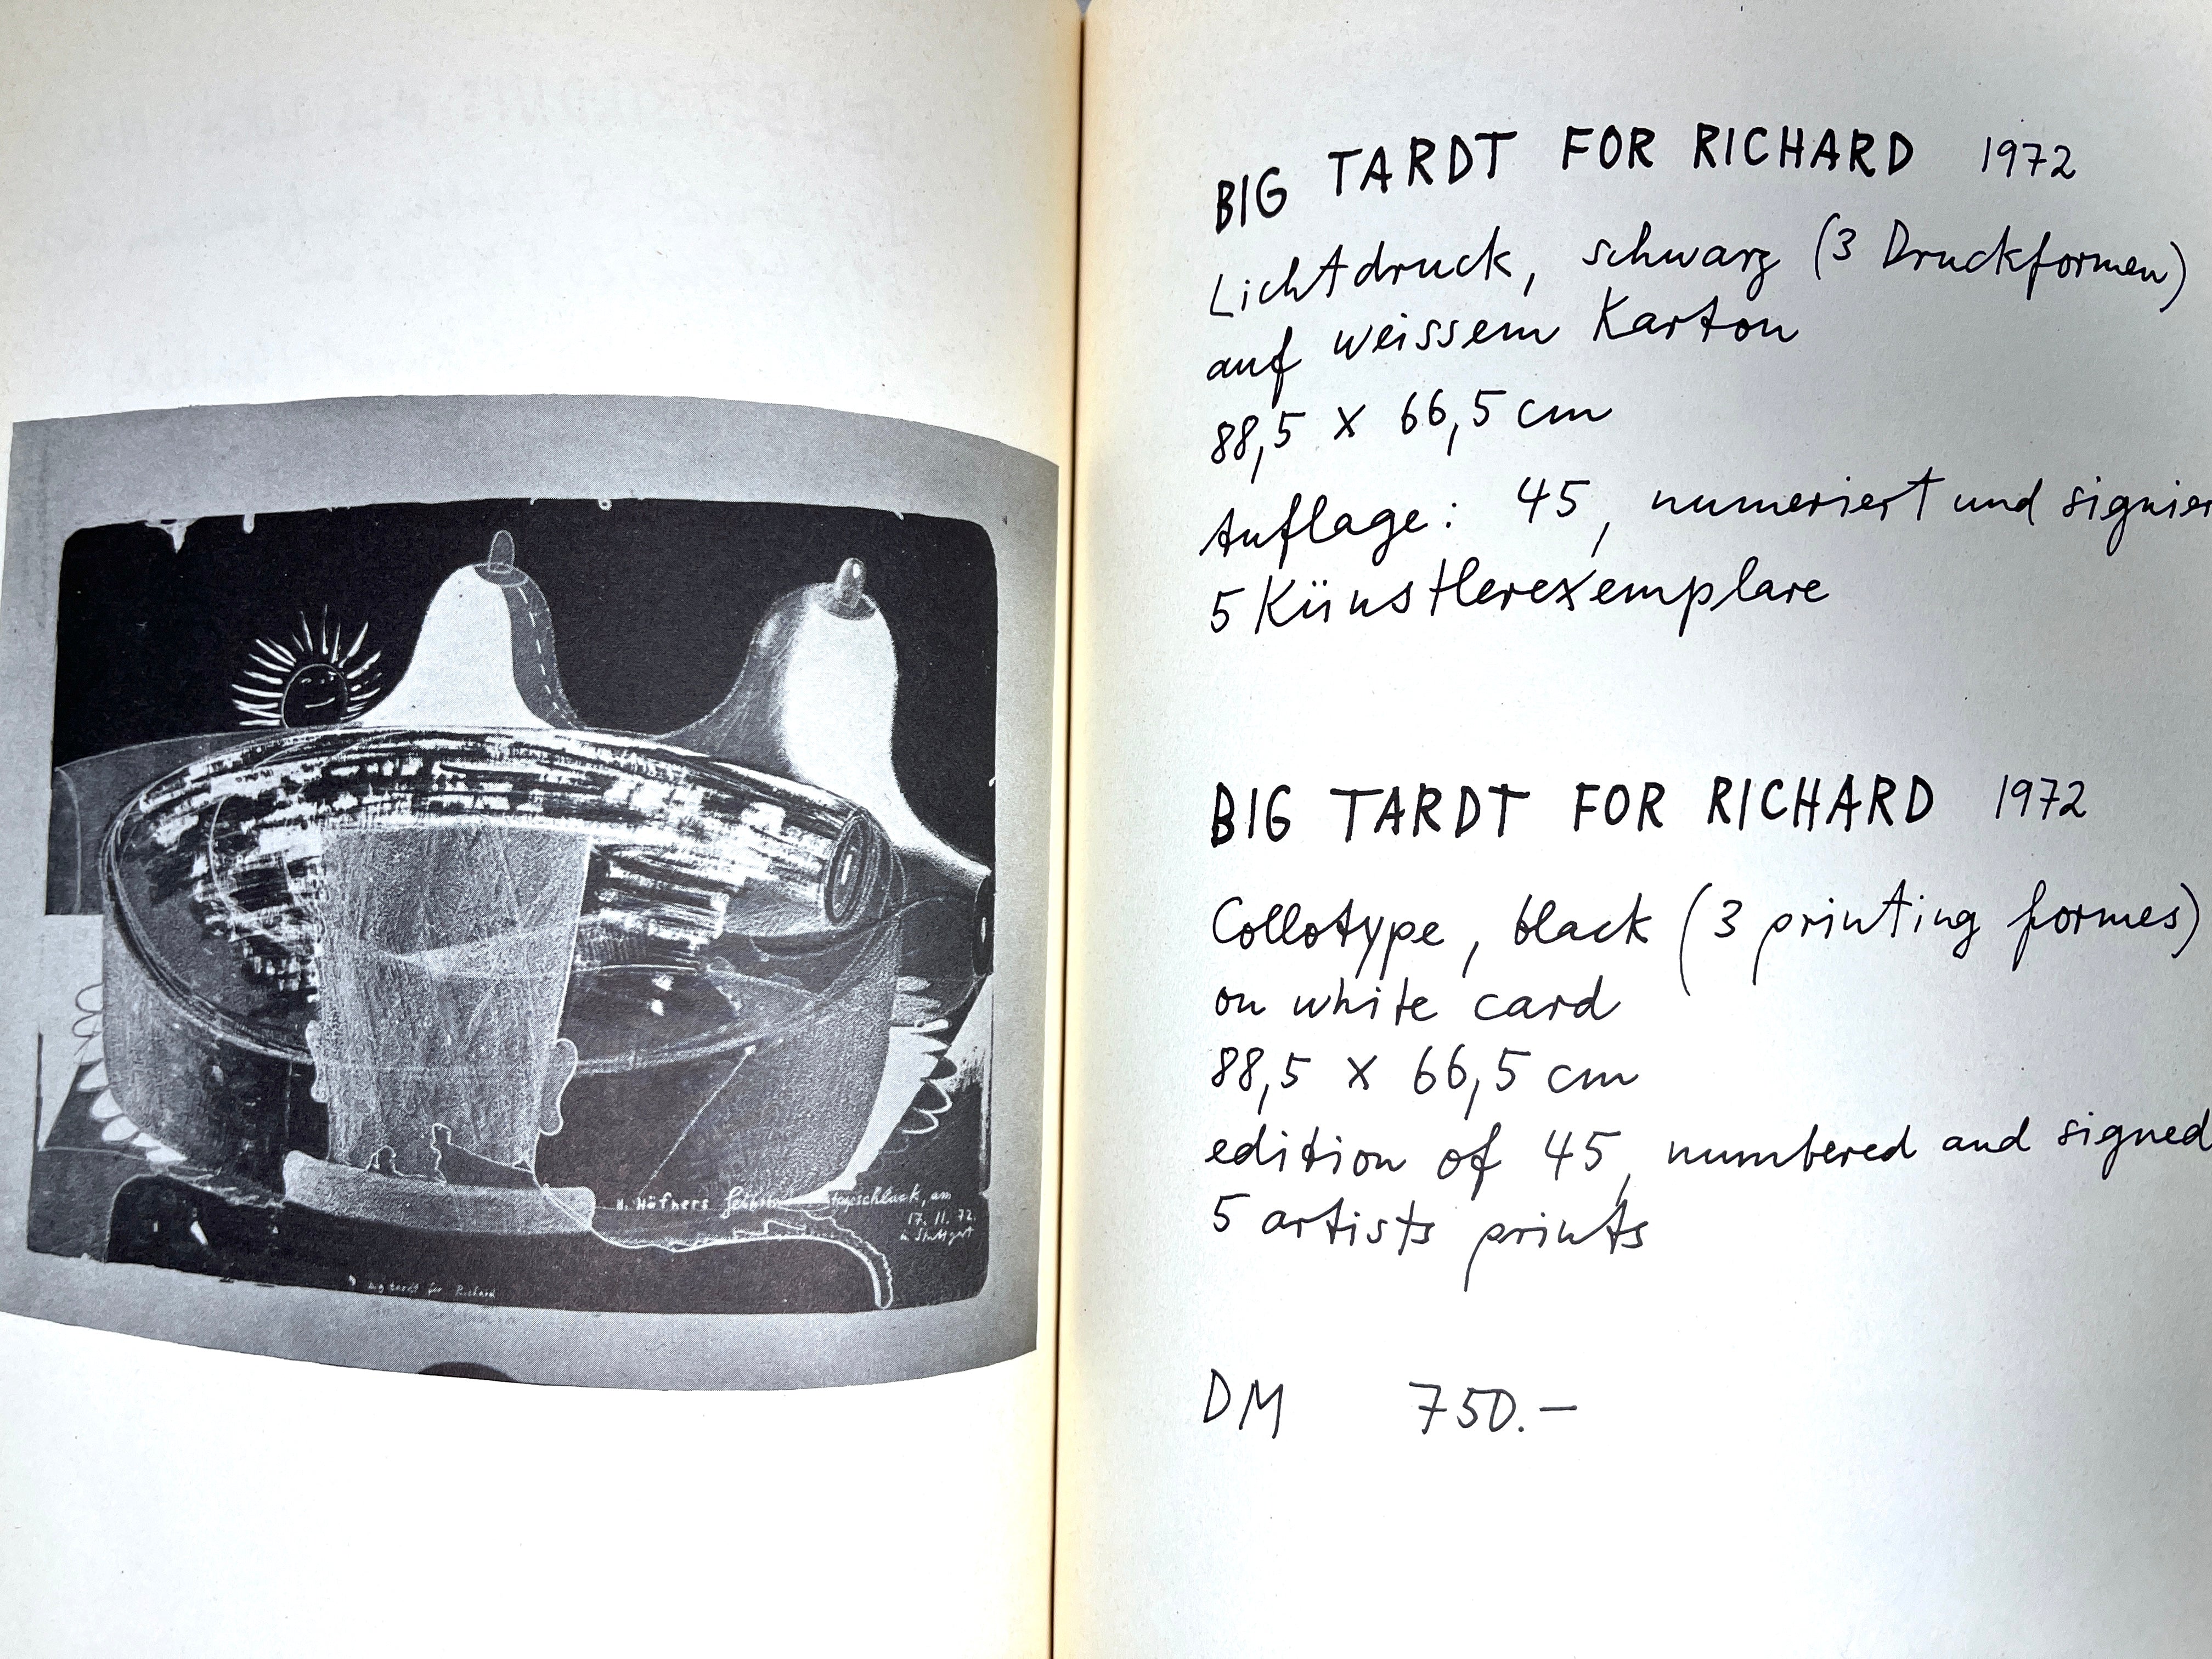 N. Häfners
am
17. 11. 72.
in Stuttgart
big tardt for Richard
BIG TARDT FOR RICHARD 1972
Lichtdruck, schwarz (3 Druckformen)
auf weissem Karton
88,5 x 66,5 cm
Auflage: 45, numeriert und signier
5 Künstlerexemplare
BIG TARDT FOR RICHARD 1972
Collotype, black (3 printing formes)
on white card
88,5 x 66,5 cm
edition of 45, numbered and signed
5 artists prints
DM 750.—